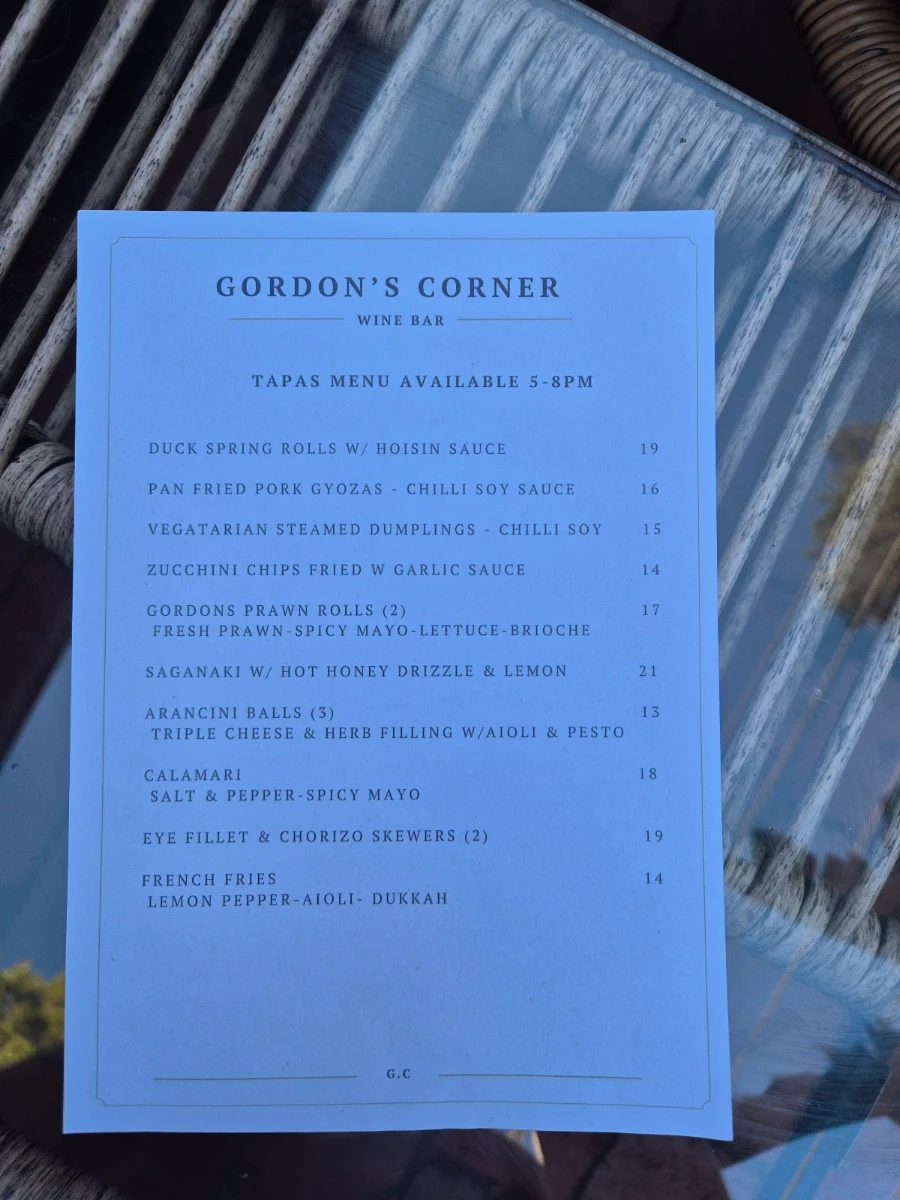 GORDON'S CORNER
WINE BAR
TAPAS MENU AVAILABLE 5-8PM
DUCK SPRING ROLLS W/ HOISIN SAUCE 19
PAN FRIED PORK GYOZAS - CHILLI SOY SAUCE 16
VEGATARIAN STEAMED DUMPLINGS - CHILLI SOY 15
ZUCCHINI CHIPS FRIED W GARLIC SAUCE 14
GORDONS PRAWN ROLLS (2) 17
FRESH PRAWN-SPICY MAYO-LETTUCE-BRIOCHE
SAGANAKI W/ HOT HONEY DRIZZLE & LEMON 21
ARANCINI BALLS (3) 13
TRIPLE CHEESE & HERB FILLING W/AIOLI & PESTO
CALAMARI 18
SALT & PEPPER-SPICY MAYO
EYE FILLET & CHORIZO SKEWERS (2) 19
FRENCH FRIES 14
LEMON PEPPER-AIOLI- DUKKAH
G.C